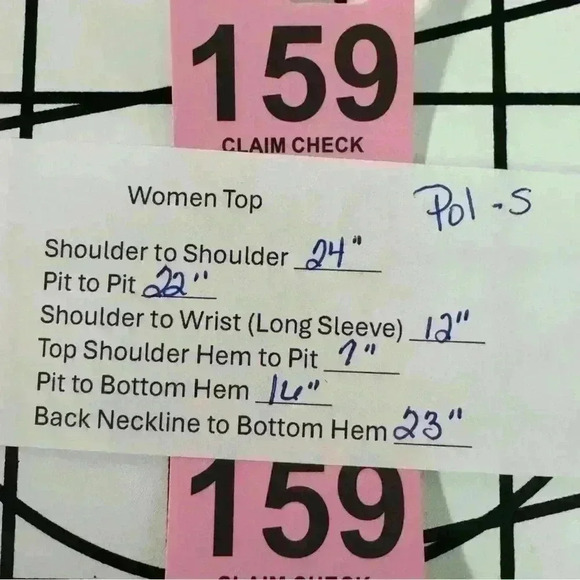 159
CLAIM CHECK
Women Top Pol - S
Shoulder to Shoulder 24"
Pit to Pit 22"
Shoulder to Wrist (Long Sleeve) 12"
Top Shoulder Hem to Pit 7"
Pit to Bottom Hem 16"
Back Neckline to Bottom Hem 23"
159
CLAIM CHECK